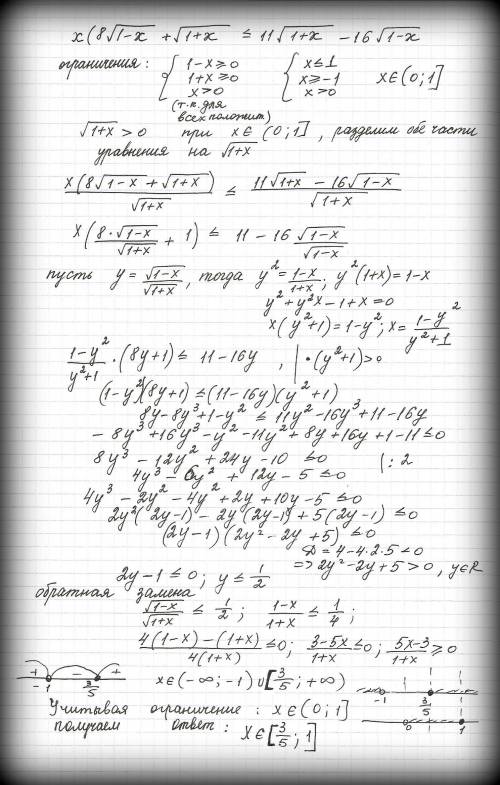 x(8√(1-x) + √(1+x) ≤ 11√(1+x) - 16√(1-x)
ограничения: { 1-x ≥ 0 { x ≤ 1
1+x ≥ 0 x ≥ -1 x∈(0;1]
x > 0 x > 0
(т.к. для
всех положит)
√(1+x) > 0 при x∈(0;1], разделим обе части
уравнения на √(1+x)
x(8√(1-x) + √(1+x))/√(1+x) ≤ (11√(1+x) - 16√(1-x))/√(1+x)
x(8·√(1-x)/√(1+x) + 1) ≤ 11 - 16 √(1-x)/√(1-x)
пусть y = √(1-x)/√(1+x), тогда y² = (1-x)/(1+x); y²(1+x) = 1-x
y² + y²x - 1 + x = 0
x(y²+1) = 1-y²; x = (1-y²)/(y²+1)
(1-y²)/(y²+1) · (8y+1) ≤ 11 - 16y , | ·(y²+1) > 0
(1-y²)(8y+1) ≤ (11-16y)(y²+1)
8y - 8y³ + 1 - y² ≤ 11y² - 16y³ + 11 - 16y
- 8y³ + 16y³ - y² - 11y² + 8y + 16y + 1 - 11 ≤ 0
8y³ - 12y² + 24y - 10 ≤ 0 |: 2
4y³ - 6y² + 12y - 5 ≤ 0
4y³ - 2y² - 4y² + 2y + 10y - 5 ≤ 0
2y²(2y-1) - 2y(2y-1) + 5(2y-1) ≤ 0
(2y-1)(2y² - 2y + 5) ≤ 0
D = 4 - 4·2·5 < 0
2y - 1 ≤ 0; y ≤ 1/2 => 2y² - 2y + 5 > 0, y∈R
обратная замена
√(1-x)/√(1+x) ≤ 1/2; (1-x)/(1+x) ≤ 1/4;
(4(1-x) - (1+x))/(4(1+x)) ≤ 0; (3-5x)/(1+x) ≤ 0; (5x-3)/(1+x) ≥ 0
+ - +
-1 3/5 x∈(-∞; -1) ∪ [3/5; +∞) -1 3/5
Учитывая ограничение: x∈(0;1] 0 1
получаем ответ: x∈[3/5; 1]